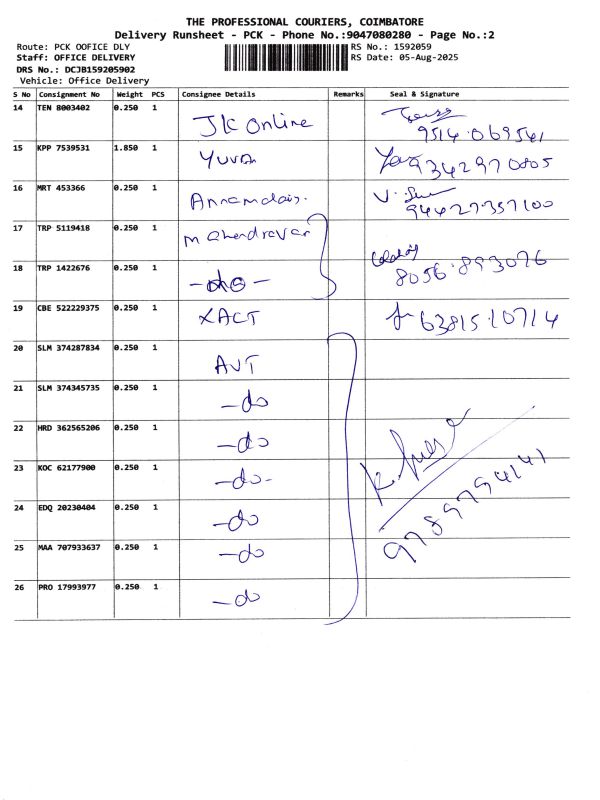 THE PROFESSIONAL COURIERS, COIMBATORE
Delivery Runsheet - PCK - Phone No.:9047080280 - Page No.:2
Route: PCK OOFICE DLY RS No.: 1592059
Staff: OFFICE DELIVERY RS Date: 05-Aug-2025
DRS No.: DCJB159205902
Vehicle: Office Delivery
S No Consignment No Weight PCS Consignee Details Remarks Seal & Signature
14 TEN 8003402 0.250 1 JK Online 9514069541
15 KPP 7539531 1.850 1 YUVA 9342970805
16 MRT 453366 0.250 1 Annamalai. 94427357100
17 TRP 5119418 0.250 1 Mahendravar
18 TRP 1422676 0.250 1 -do- 8056.893076
19 CBE 522229375 0.250 1 XACT 6381510714
20 SLM 374287834 0.250 1 AVT
21 SLM 374345735 0.250 1 -do
22 HRD 362565206 0.250 1 -do
23 KOC 62177900 0.250 1 -do-
24 EDQ 20230404 0.250 1 -do
25 MAA 707933637 0.250 1 -do
26 PRO 17993977 0.250 1 -do
9789794141